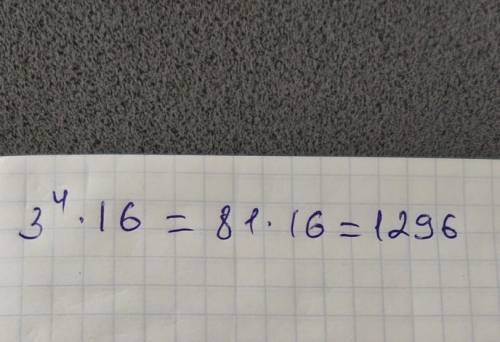 3⁴ · 16 = 81 · 16 = 1296